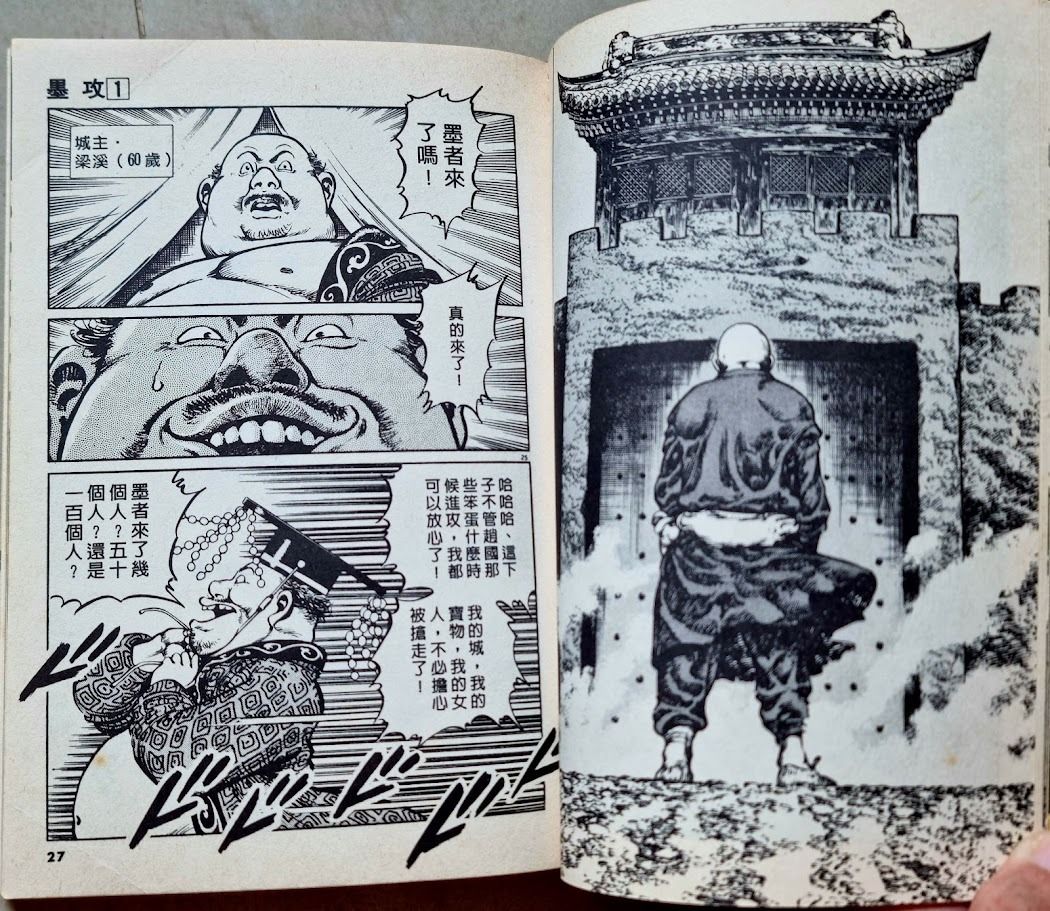 墨攻1
墨者來
了嗎！
城主．
梁溪（60歲）
真的來了！
25
哈哈哈、這下
子不管趙國那
些笨蛋什麼時
候進攻，我都
可以放心了！
我的城，我的
寶物，我的女
人，不必擔心
被搶走了！
墨者來了幾
個人？五十
個人？還是
一百個人？
ドッ
ドッ
ドッ
ドッ
ドッ
ド
27